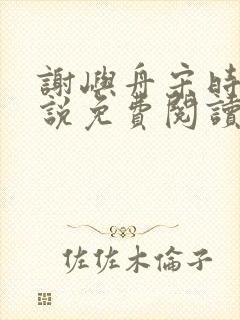 謝嶼舟宋時
說免費閱讀
佐佐木倫子